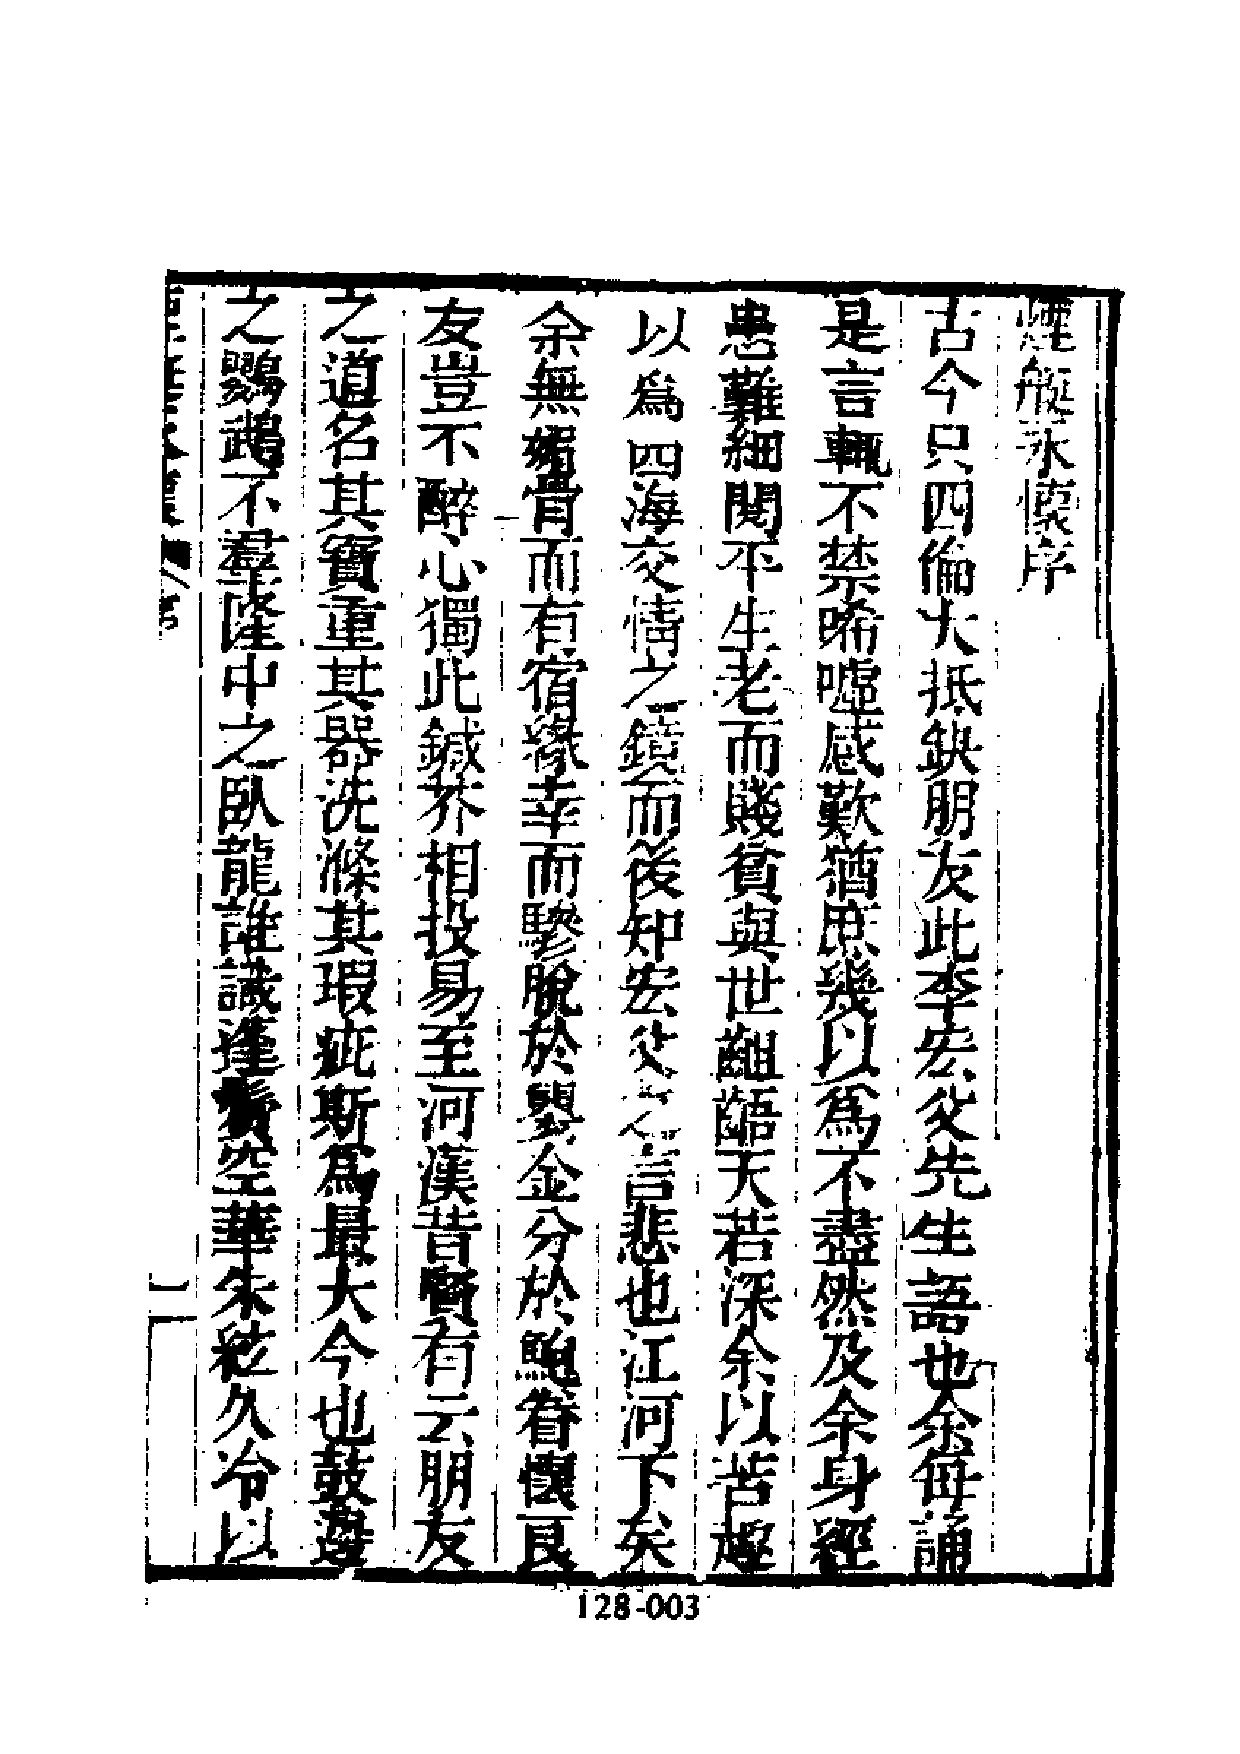 煙艇永懷序
古今只四倫大抵缺朋友此李宏父先生語也余每誦
是言輒不禁唏噓感歎猶庶幾以爲不盡然及余身經
患難細閱平生老而賤貧與世齟齬天若深余以苦趣
以爲四海交情之鏡而後知宏父之言悲也江河下矣
余無媚骨而有宿緣幸而驂脫於嬰金分於鮑眷懷良
友豈不醉心獨此鍼芥相投易至河漢昔賢有云朋友
之道名其寶重其器洗滌其瑕疵斯爲最大今也鼓邊
之鸚鵡不羣隆中之臥龍誰識逢賓空華朱絃久冷以
128-003